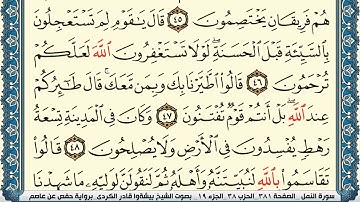 هُمْ فَرِيقَانِ يَخْتَصِمُونَ ﴿٤٥﴾ قَالَ يَٰقَوْمِ لِمَ تَسْتَعْجِلُونَ
بِٱلسَّيِّئَةِ قَبْلَ ٱلْحَسَنَةِ ۖ لَوْلَا تَسْتَغْفِرُونَ ٱللَّهَ لَعَلَّكُمْ
تُرْحَمُونَ ﴿٤٦﴾ قَالُوا۟ ٱطَّيَّرْنَا بِكَ وَبِمَن مَّعَكَ ۚ قَالَ طَٰٓئِرُكُمْ
عِندَ ٱللَّهِ ۖ بَلْ أَنتُمْ قَوْمٌ تُفْتَنُونَ ﴿٤٧﴾ وَكَانَ فِى ٱلْمَدِينَةِ تِسْعَةُ
رَهْطٍ يُفْسِدُونَ فِى ٱلْأَرْضِ وَلَا يُصْلِحُونَ ﴿٤٨﴾ قَالُوا۟
تَقَاسَمُوا۟ بِٱللَّهِ لَنُبَيِّتَنَّهُۥ وَأَهْلَهُۥ ثُمَّ لَنَقُولَنَّ لِوَلِيِّهِۦ مَا شَهِدْنَا
سورة النمل الصفحة ٣٨١ الحزب ٣٨ الجزء ١٩ بصوت الشيخ بيشةوا قادر الكردي برواية حفص عن عاصم